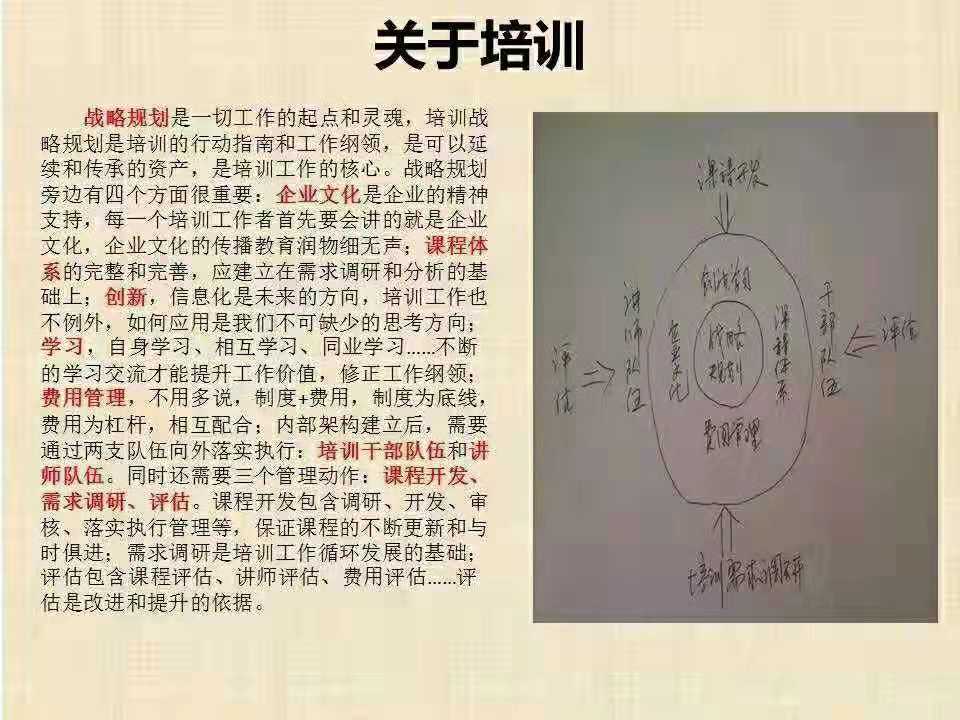 关于培训
战略规划是一切工作的起点和灵魂，培训战
略规划是培训的行动指南和工作纲领，是可以延
续和传承的资产，是培训工作的核心。战略规划
旁边有四个方面很重要：企业文化是企业的精神
支持，每一个培训工作者首先要会讲的就是企业
文化，企业文化的传播教育润物细无声；课程体
系的完整和完善，应建立在需求调研和分析的基
础上；创新，信息化是未来的方向，培训工作也
不例外，如何应用是我们不可缺少的思考方向；
学习，自身学习、相互学习、同业学习……不断
的学习交流才能提升工作价值，修正工作纲领；
费用管理，不用多说，制度+费用，制度为底线，
费用为杠杆，相互配合；内部架构建立后，需要
通过两支队伍向外落实执行：培训干部队伍和讲
师队伍。同时还需要三个管理动作：课程开发、
需求调研、评估。课程开发包含调研、开发、审
核、落实执行管理等，保证课程的不断更新和与
时俱进；需求调研是培训工作循环发展的基础；
评估包含课程评估、讲师评估、费用评估……评
估是改进和提升的依据。
开发
评估
讲师队伍
企业文化
战略
规划
课程体系
干部队伍
评估
费用管理
培训需求调研